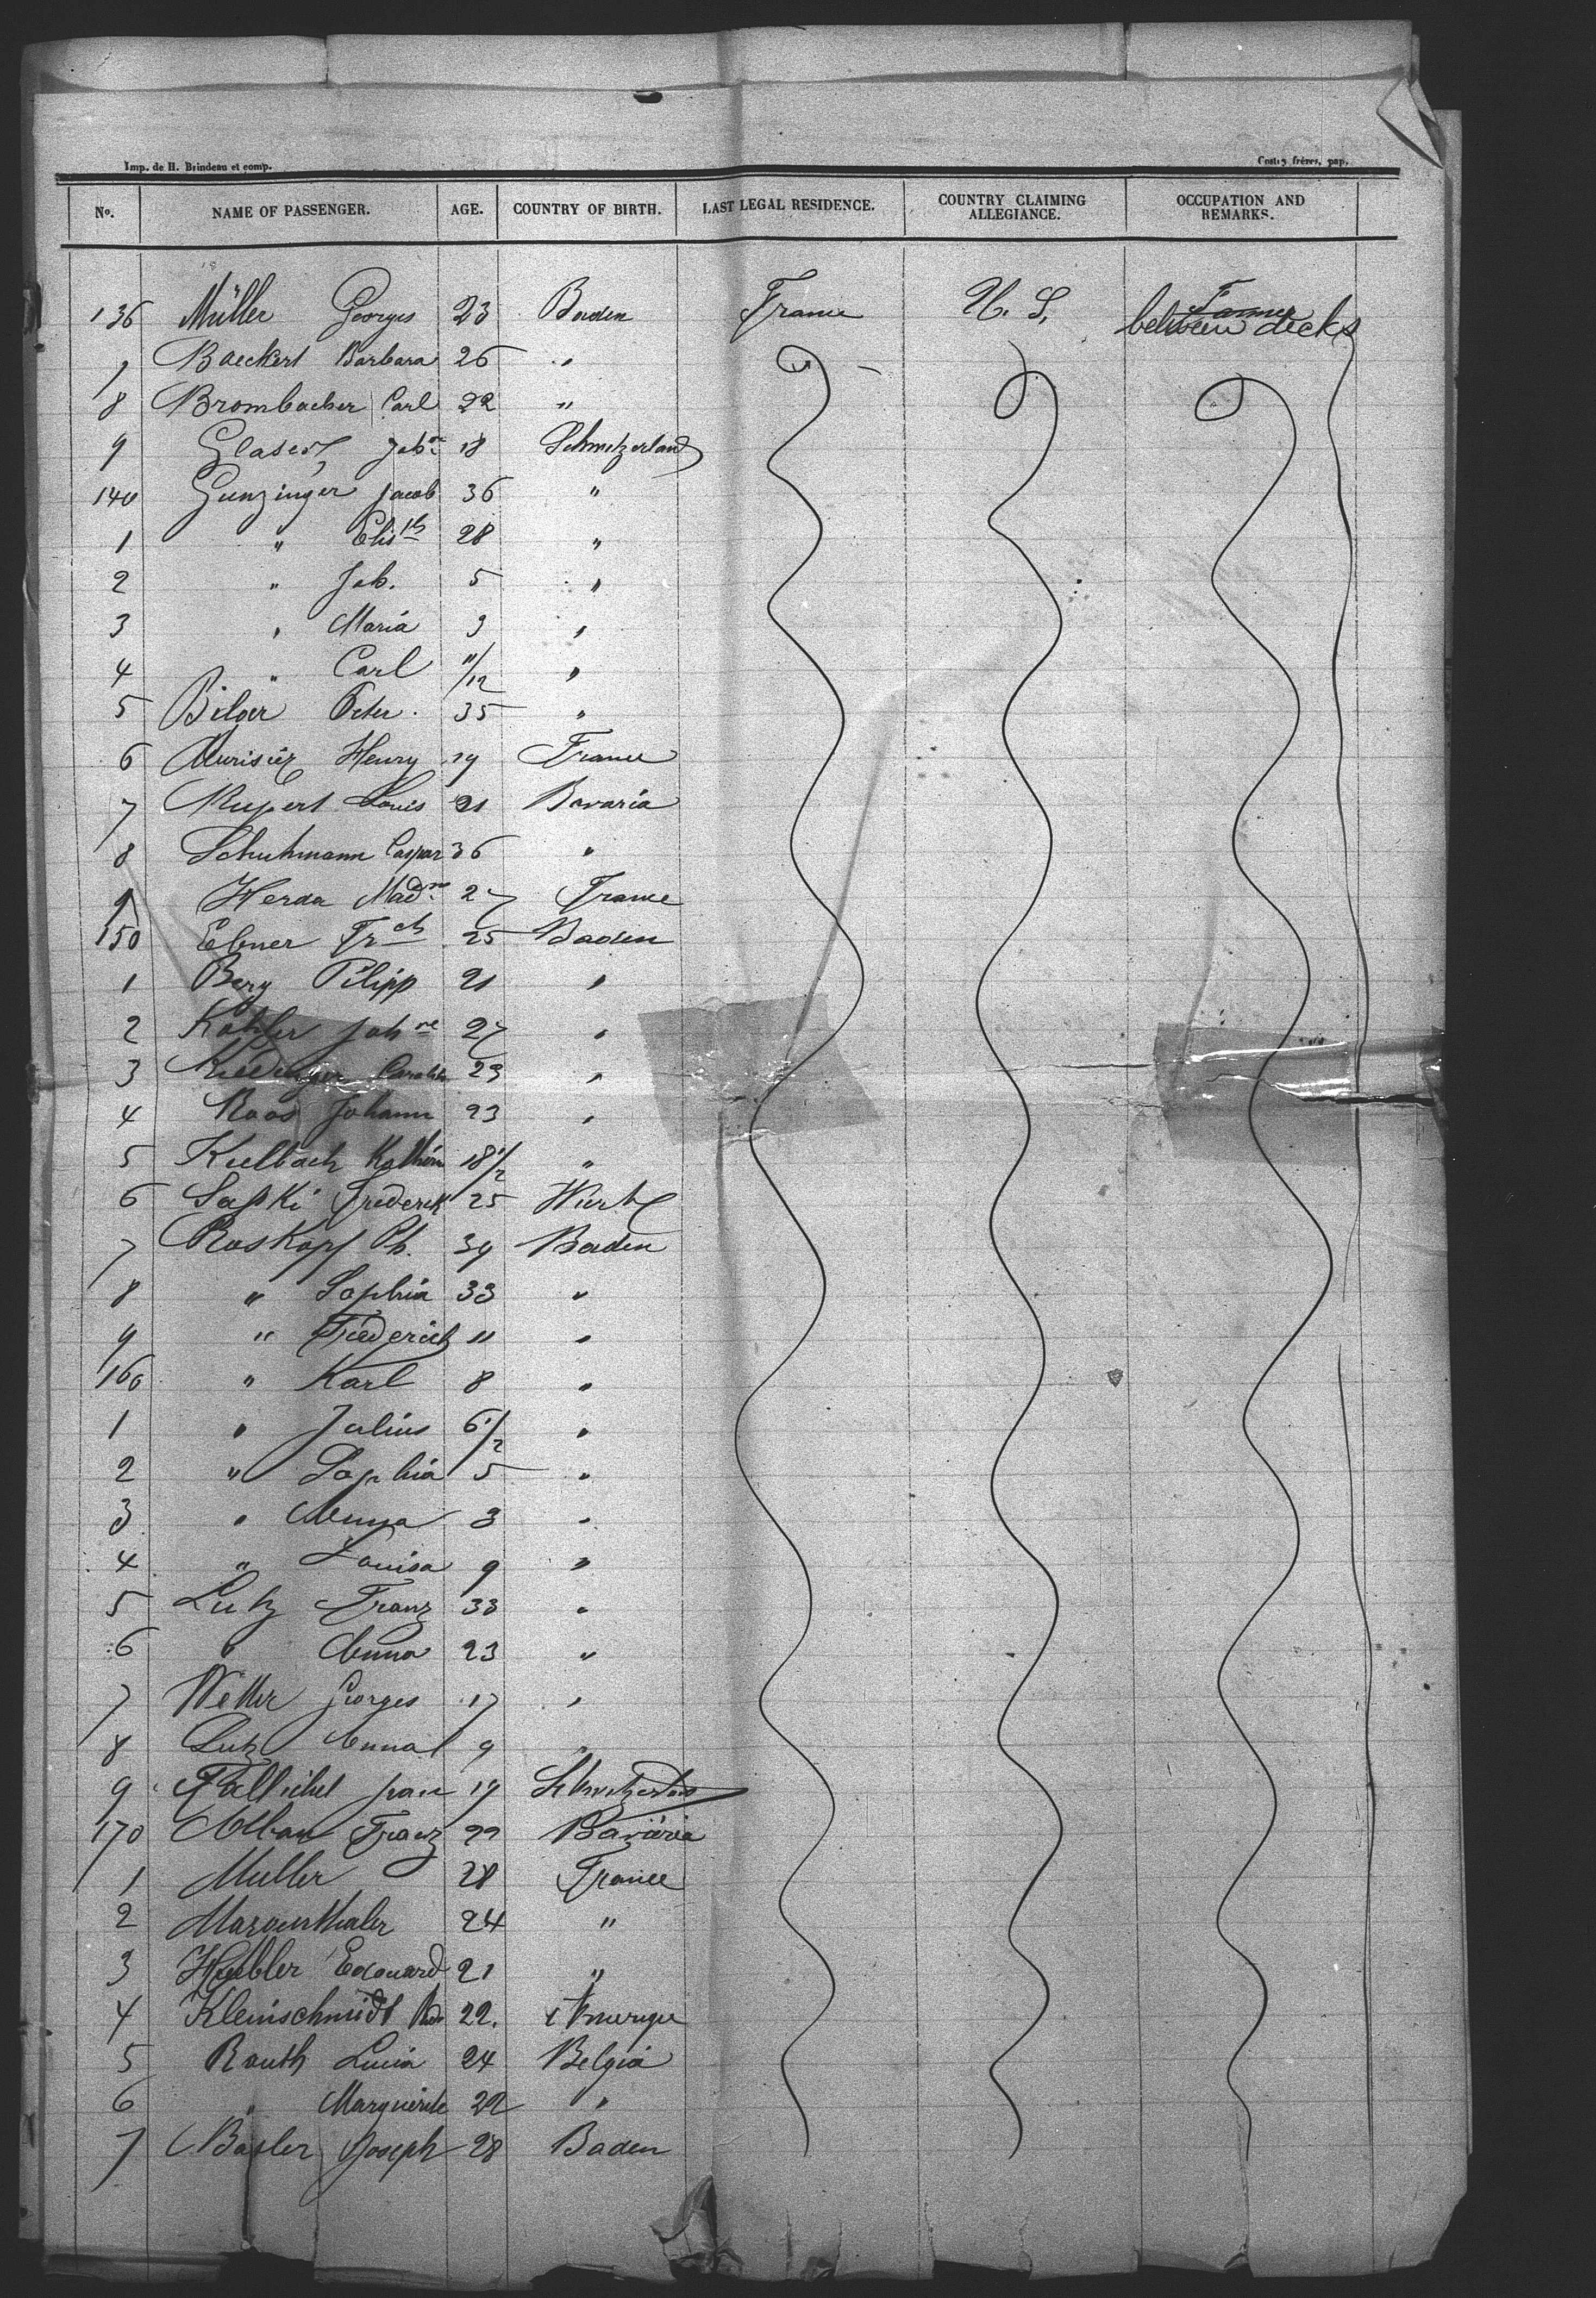 Imp. de H. Brindeau et comp.
Costey frères, pap.
No. NAME OF PASSENGER. AGE. COUNTRY OF BIRTH. LAST LEGAL RESIDENCE. COUNTRY CLAIMING ALLEGIANCE. OCCUPATION AND REMARKS.
136 Müller Georges 23 Baden France U. S. Farmer between decks
7 Baeckert Barbara 26 "
8 Brombacher Carl 22 "
9 Glaser 18 Schwitzerland
140 Gunzinger Jacob 36 "
1 " Elisth 28 "
2 " Joh. 5 "
3 " Maria 3 "
4 " Carl 11/12 "
5 Bilger Peter. 35 "
6 Henry 19 France
7 Rupert Louis 21 Bavaria
8 Schuhmann Caspar 36 "
9 Herda Madne 27 France
150 Ebner Frch 25 Baden
1 Berg Pilipp 21 "
2 Kohler Johne 27 "
3 23 "
4 Roos Johann 23 "
5 Kulbach 18 1/2 "
6 Frederik 25 Wurtg
7 Roskopf Ph. 39 Baden
8 " Sophia 33 "
9 " Frederich 11 "
160 " Karl 8 "
1 " Julius 6 1/2 "
2 " Sophia 5 "
3 " Anna 3 "
4 " Louisa 9 "
5 Lutz Franz 33 "
6 " Anna 23 "
7 Georges 17 "
8 Lutz Anna 9 "
9 19 Schwitzerland
170 Alban Franz 22 Bavaria
1 Muller 28 France
2 24 "
3 Hubler Edouard 21 "
4 Kleinschmidt 22. Amerique
5 Rauth Lucia 24 Belgia
6 " Marguerite 22 "
7 Basler Joseph 28 Baden